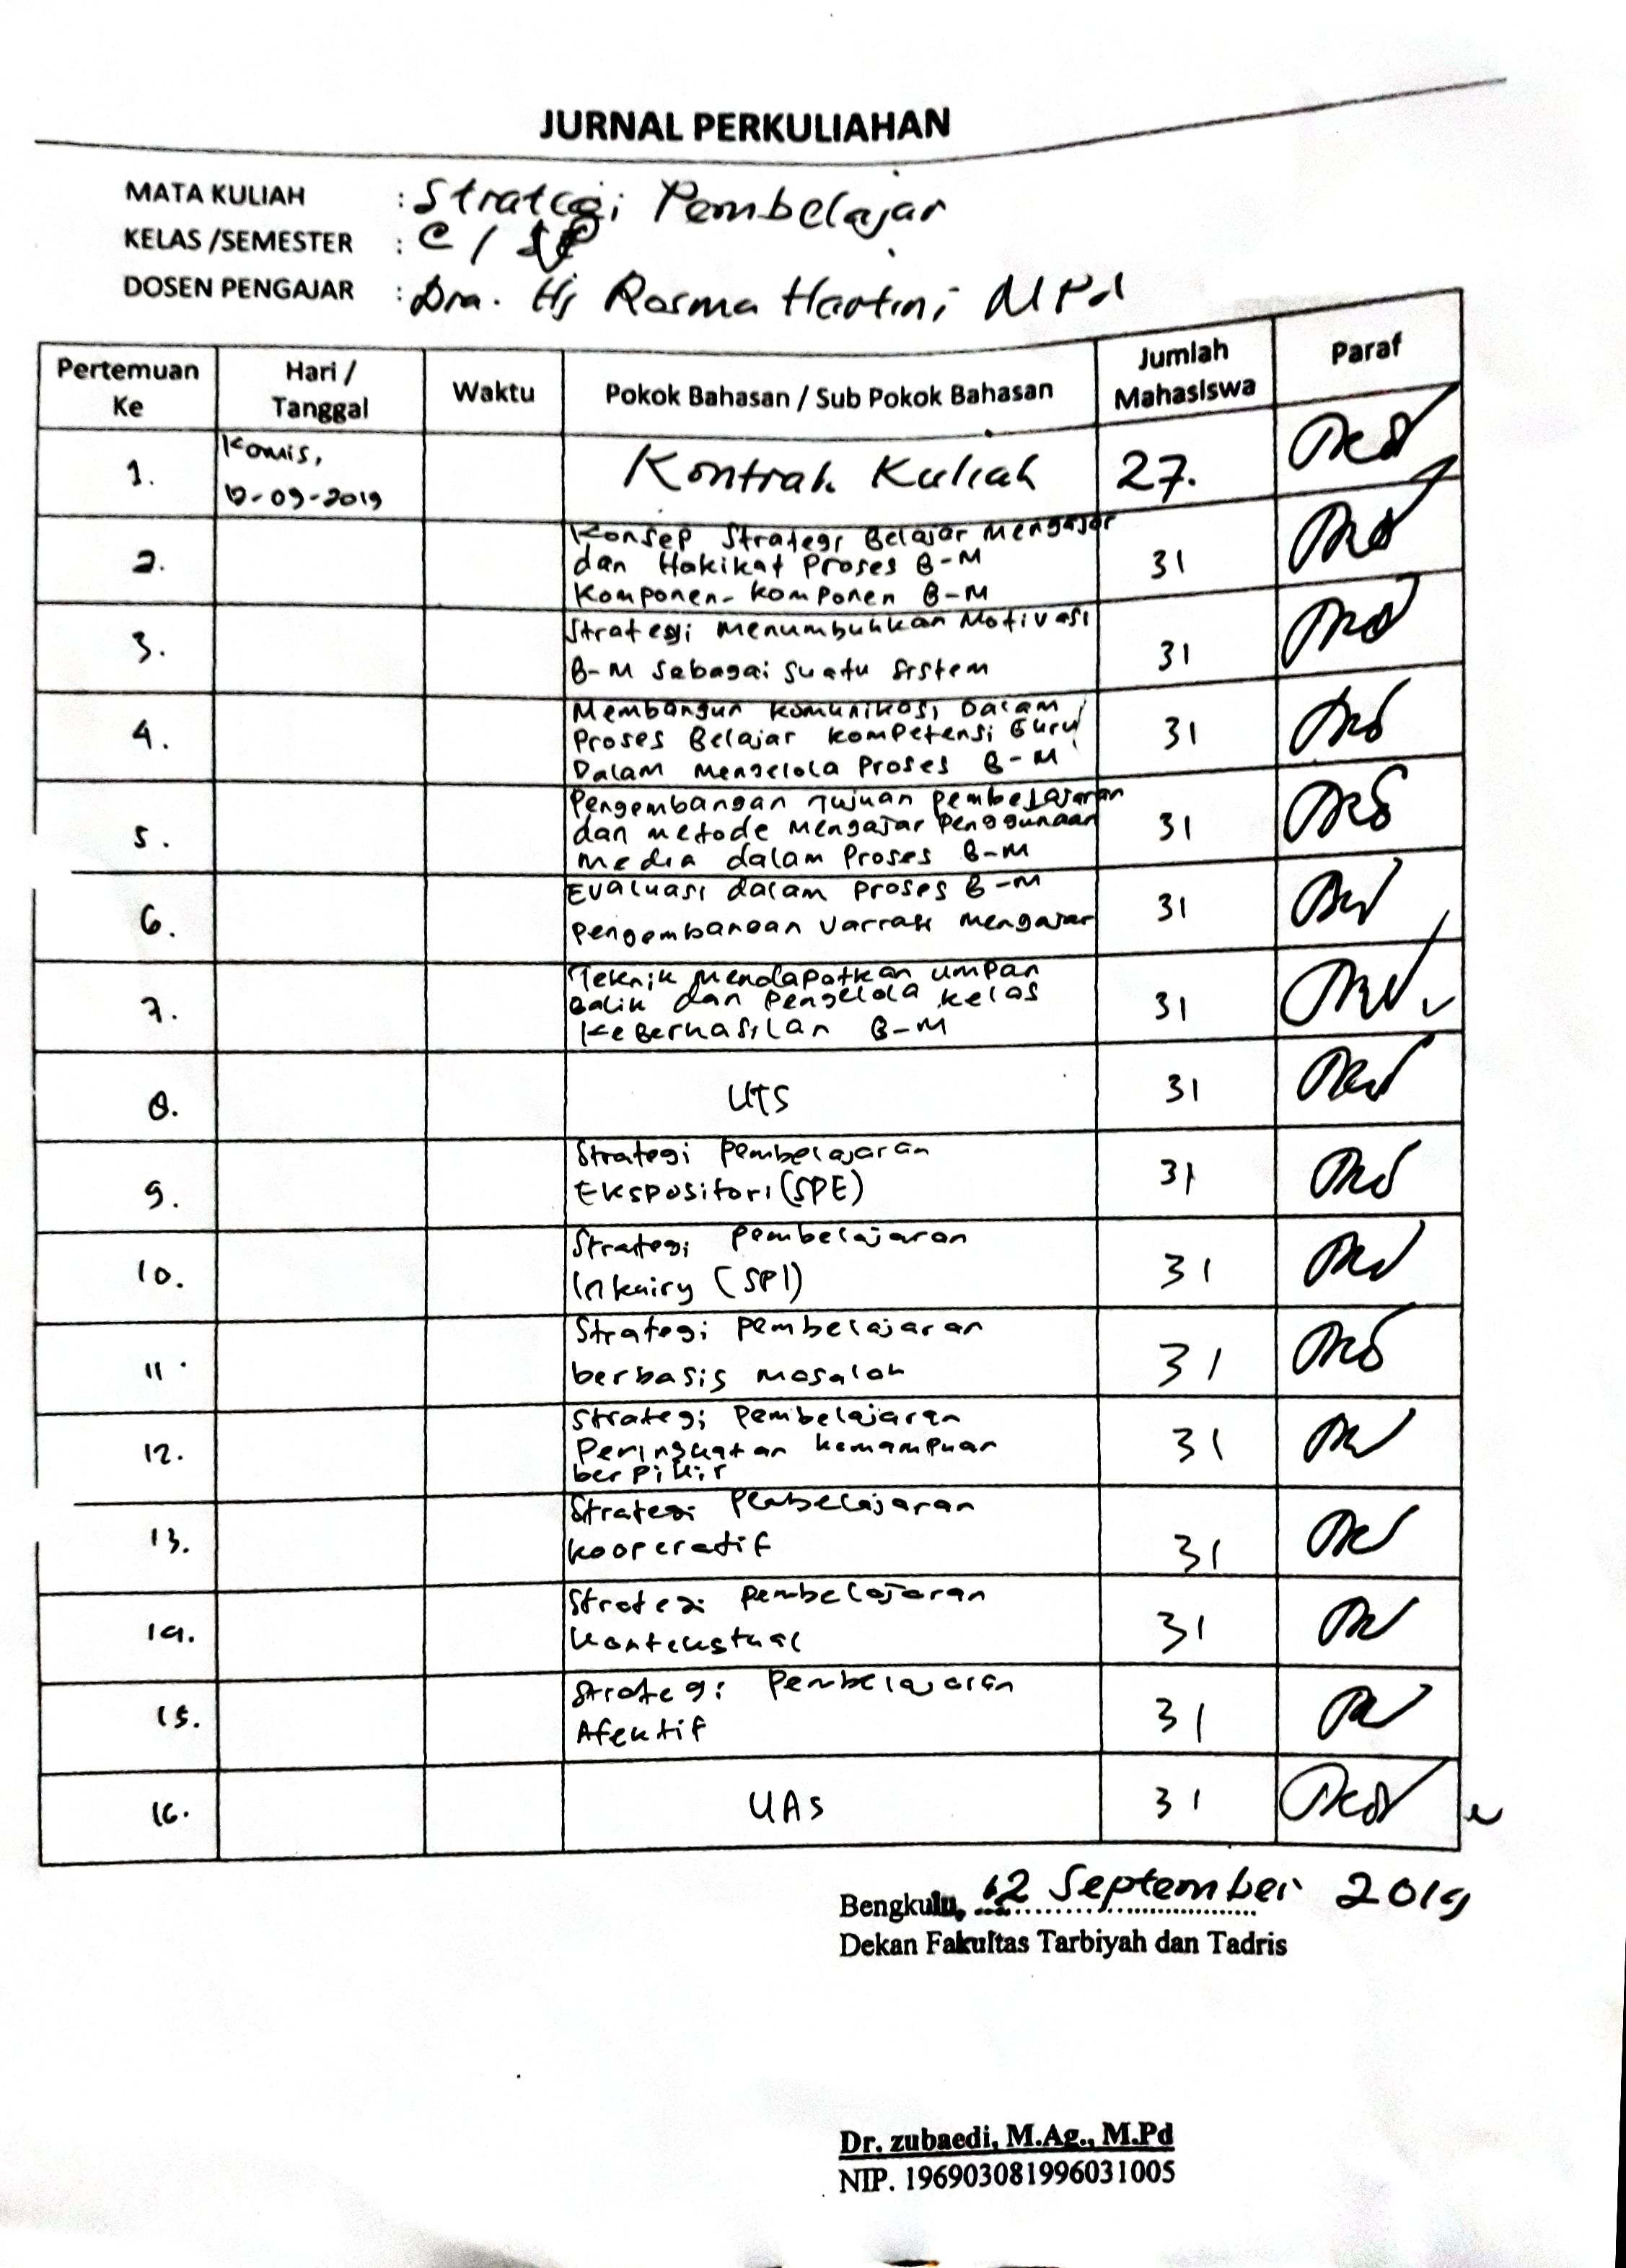 JURNAL PERKULIAHAN
MATA KULIAH : Strategi Pembelajar
KELAS /SEMESTER : C /
DOSEN PENGAJAR : Dra. Hj Rosma Hartini MPd
Pertemuan Ke Hari / Tanggal Waktu Pokok Bahasan / Sub Pokok Bahasan Jumlah Mahasiswa Paraf
1. Kamis, 12-09-2019 Kontrak Kuliah 27.
2. Konsep Strategi Belajar Mengajar
dan Hakikat Proses B-M 31
Komponen-komponen B-M
3. Strategi Menumbuhkan Motivasi
B-M Sebagai Suatu Sistem 31
4. Membangun Komunikasi Dalam
Proses Belajar Kompetensi Guru 31
Dalam Mengelola Proses B-M
5. Pengembangan Tujuan Pembelajaran
dan metode Mengajar Penggunaan 31
Media dalam Proses B-M
6. Evaluasi dalam Proses B-M 31
Pengembangan Variasi Mengajar
7. Teknik Mendapatkan Umpan
Balik dan Pengelola kelas 31
Keberhasilan B-M
8. UTS 31
9. Strategi Pembelajaran 31
Ekspositori (SPE)
10. Strategi Pembelajaran 31
Inkuiry (SPI)
11. Strategi Pembelajaran 31
berbasis masalah
12. Strategi Pembelajaran
Peringkatan kemampuan 31
berpikir
13. Strategi Pembelajaran
Kooperatif 31
14. Strategi Pembelajaran
Kontekstual 31
15. Strategi Pembelajaran
Afektif 31
16. UAS 31
Bengkulu, 12 September 2019
Dekan Fakultas Tarbiyah dan Tadris
Dr. zubaedi, M.Ag., M.Pd
NIP. 196903081996031005